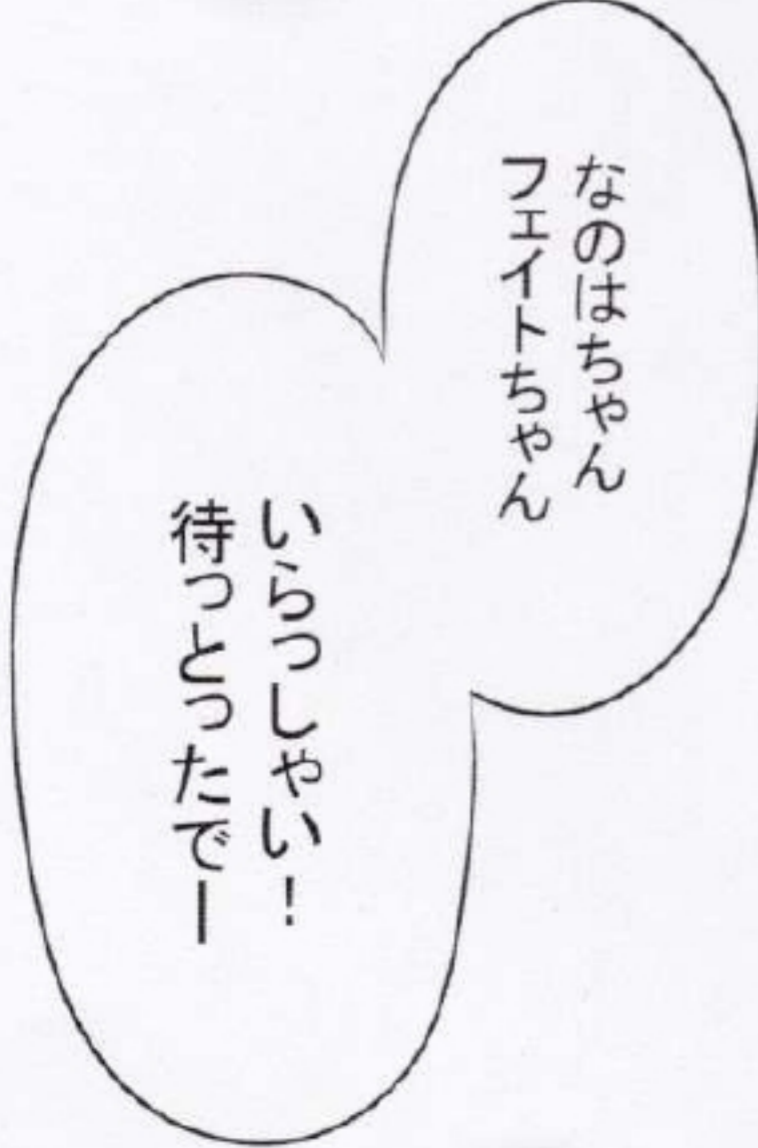 なのはちゃん
フェイトちゃん
いらっしゃい！
待っとったでー